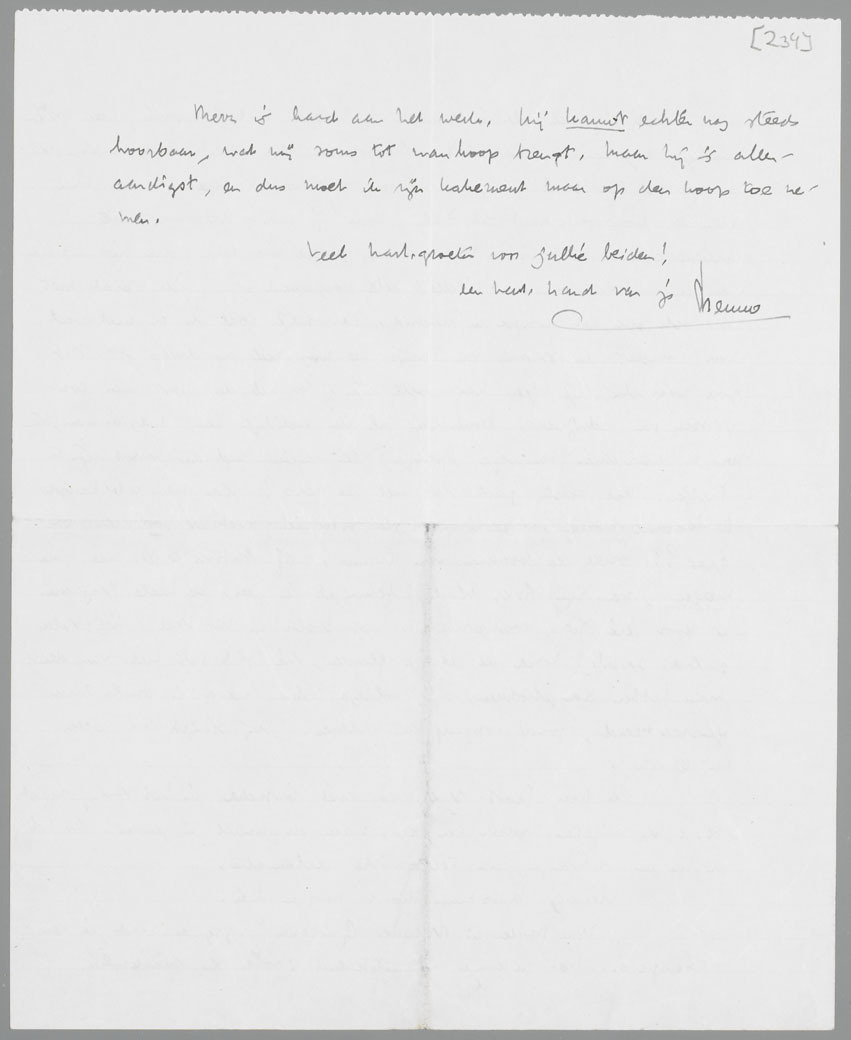 [234]
Merx is hard aan het werk. hij kauwt echter nog steeds
hoorbaar, wat mij soms tot wanhoop brengt. Maar hij is aller-
aardigst, en dus moet ik zijn kakement maar op den koop toe ne-
men.
Veel hart. groeten voor jullie beiden!
een hart. hand van je Menno